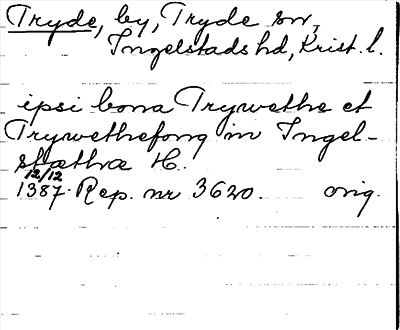 Tryde, by, Tryde sn,
Ingelstads hd, Krist. l.
ipsi bona Trywethe et
Trywethefong in Ingel-
stæthræ H.
12/12
1387. Rep. nr 3620. orig.